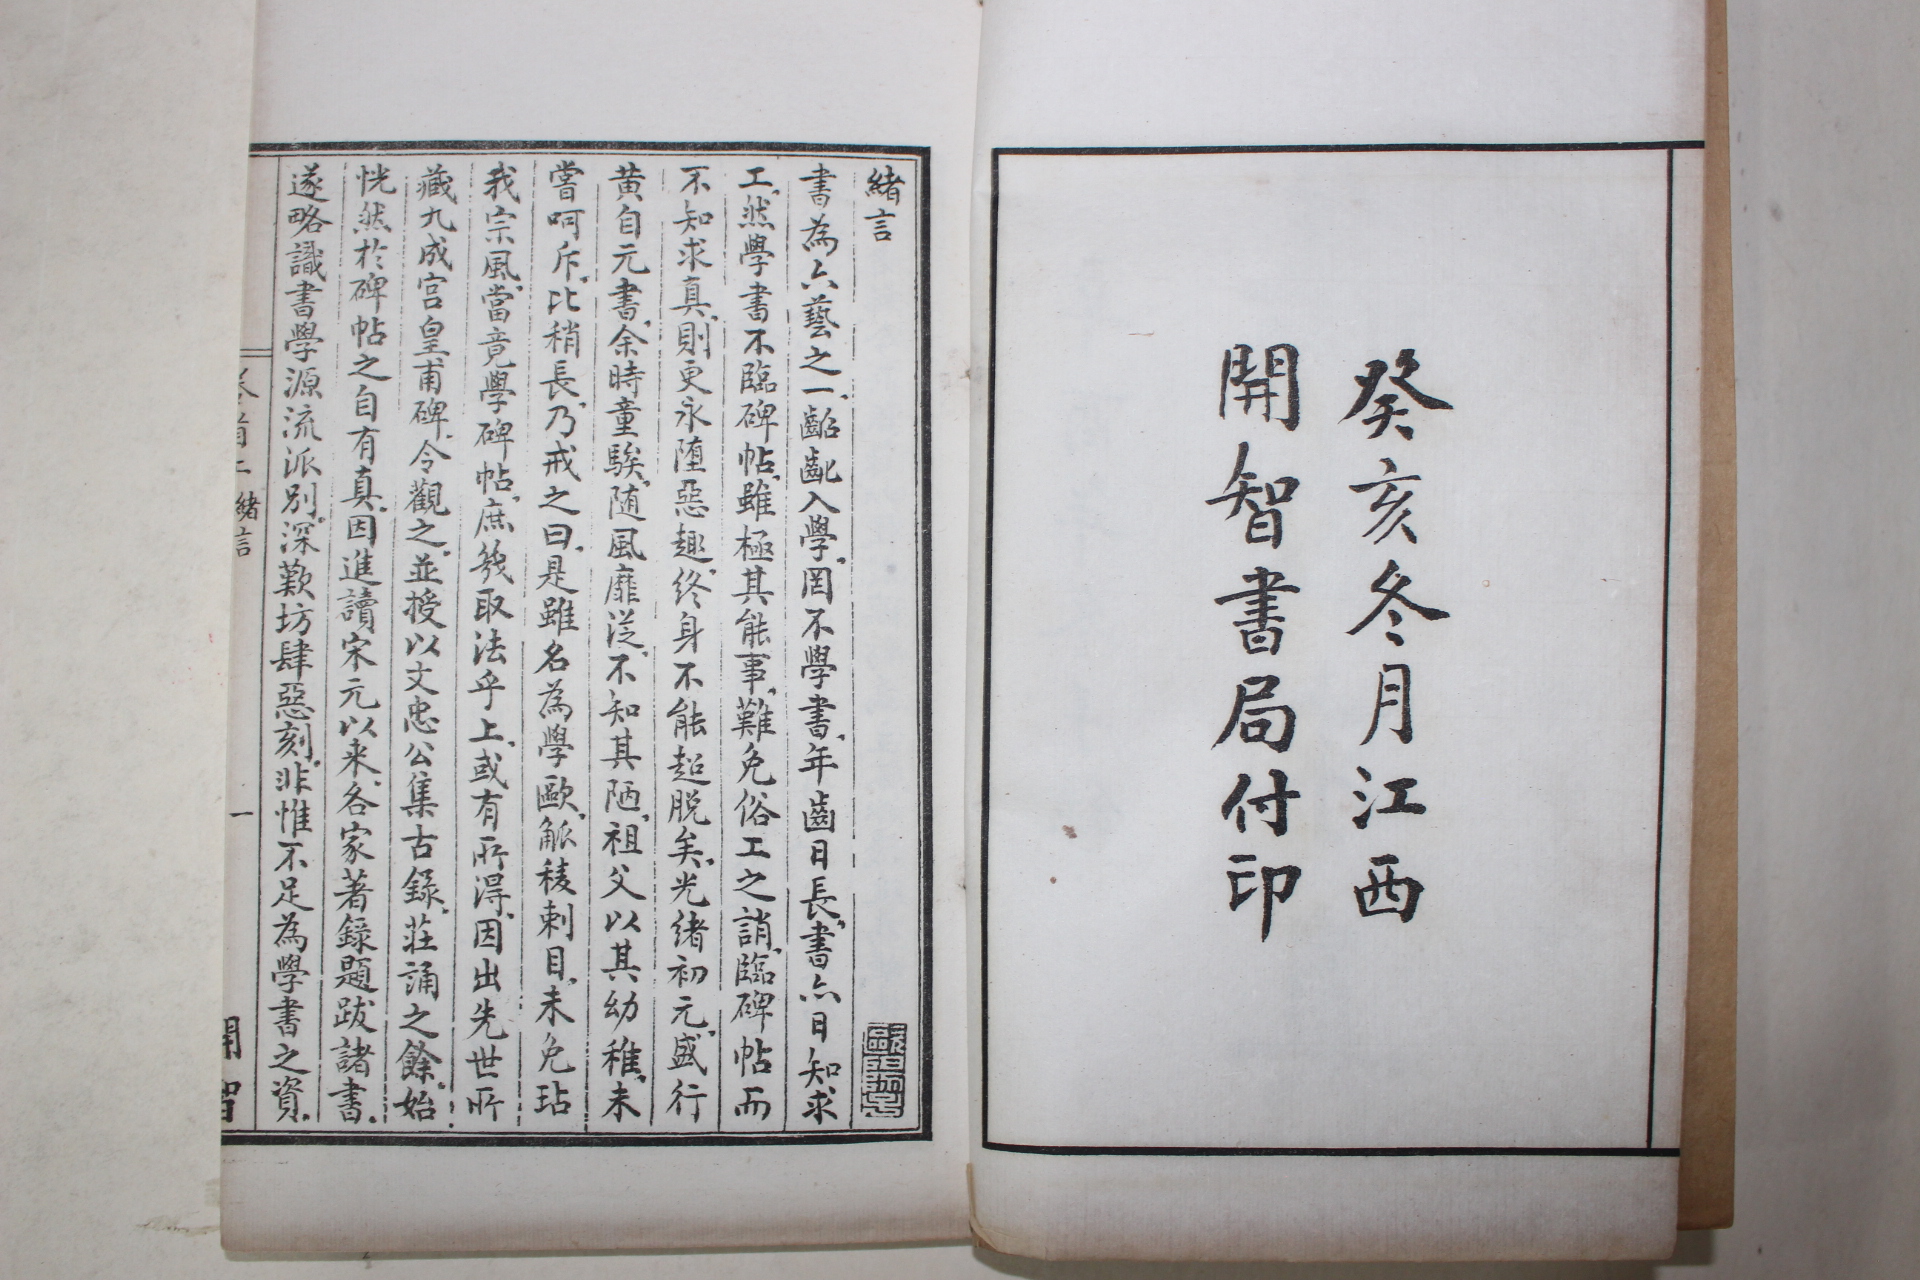 癸亥冬月江西
開智書局付印
緒言
書為六藝之一齠齔入學罔不學書年齒日長書亦日知求
工然學書不臨碑帖雖極其能事難免俗工之誚臨碑帖而
不知求真則更永墮惡趣終身不能超脫矣光緒初元盛行
黃自元書余時童騃隨風靡從不知其陋祖父以其幼稚未
嘗呵斥比稍長乃戒之曰是雖名為學歐觚稜刺目未免玷
我宗風當竟學碑帖庶幾取法乎上或有所得因出先世所
藏九成宮皇甫碑令觀之並授以文忠公集古錄莊誦之餘始
恍然於碑帖之自有真因進讀宋元以來各家著錄題跋諸書
遂略識書學源流派別深歎坊肆惡刻非惟不足為學書之資
緒言
一
開智